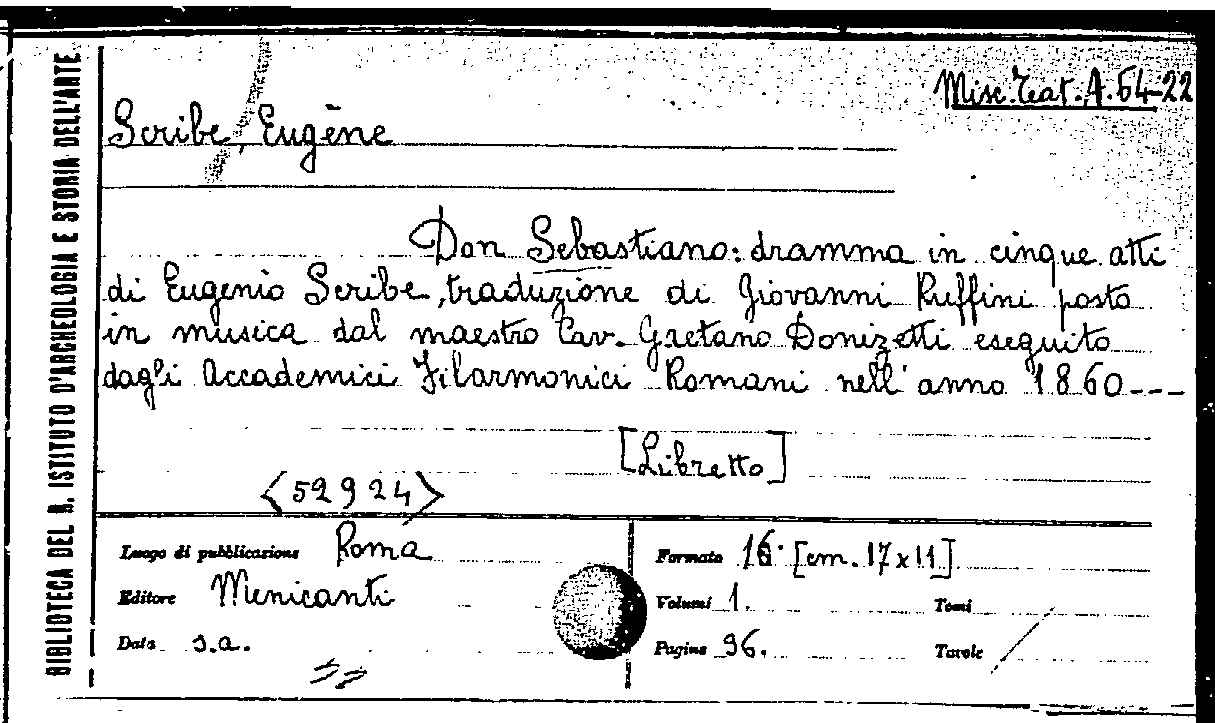 Misc. Teat. A. 64-22
Scribe, Eugène
Don Sebastiano: dramma in cinque atti
di Eugenio Scribe, traduzione di Giovanni Ruffini posto
in musica dal maestro Cav. Gaetano Donizetti eseguito
dagli Accademici Filarmonici Romani nell'anno 1860---
[Libretto]
<52924>
Luogo di pubblicazione Roma
Editore Menicanti
Data s.a.
Formato 16° [cm. 17x11]
Volumi 1.
Tomi
Pagine 96.
Tavole
BIBLIOTECA DEL R. ISTITUTO D'ARCHEOLOGIA E STORIA DELL'ARTE